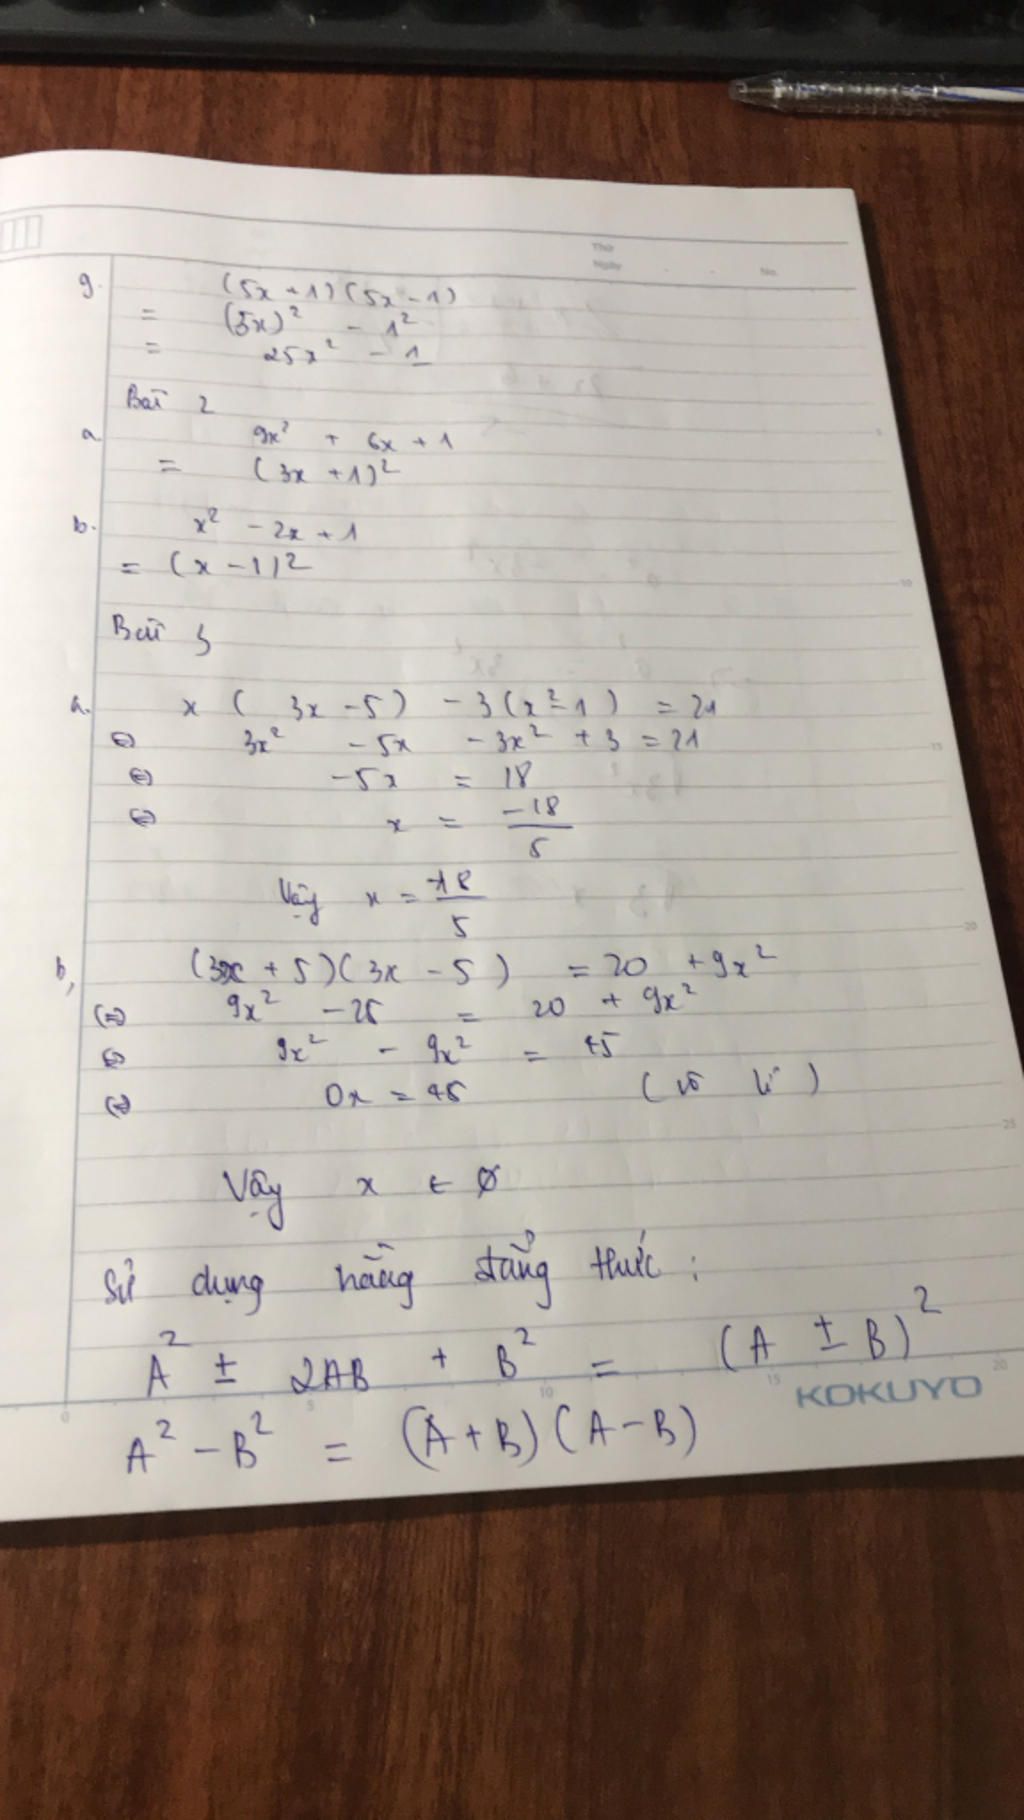 Thứ
Ngày . . No.
g. (5x + 1)(5x - 1)
= (5x)² - 1²
= 25x² - 1
Bài 2
a 9x² + 6x + 1
= (3x + 1)²
b. x² - 2x + 1
= (x - 1)²
Bài 3
a. x ( 3x - 5) - 3(x² - 1) = 21
⇔ 3x² - 5x - 3x² + 3 = 21
⇔ -5x = 18
⇔ x = -18/5
Vậy x = -18/5
b, (3x + 5)(3x - 5) = 20 + 9x²
⇔ 9x² - 25 = 20 + 9x²
⇔ 9x² - 9x² = 45
⇔ 0x = 45 (vô lí)
Vậy x ∈ ∅
Sử dụng hằng đẳng thức :
A² ± 2AB + B² = (A ± B)²
KOKUYO
A² - B² = (A + B)(A - B)